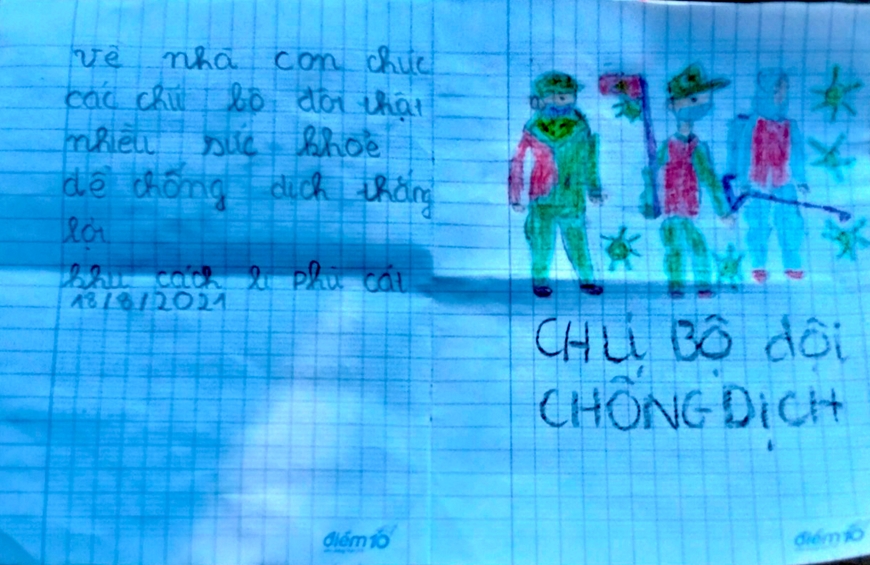 về nhà con chúc
các chú bộ đội thật
nhiều sức khoẻ
dể chống dịch thắng
lợi
khu cách li phù cát
18/8/2021
CHÚ BỘ dội
CHỐNG DỊCH
điểm10
điểm10